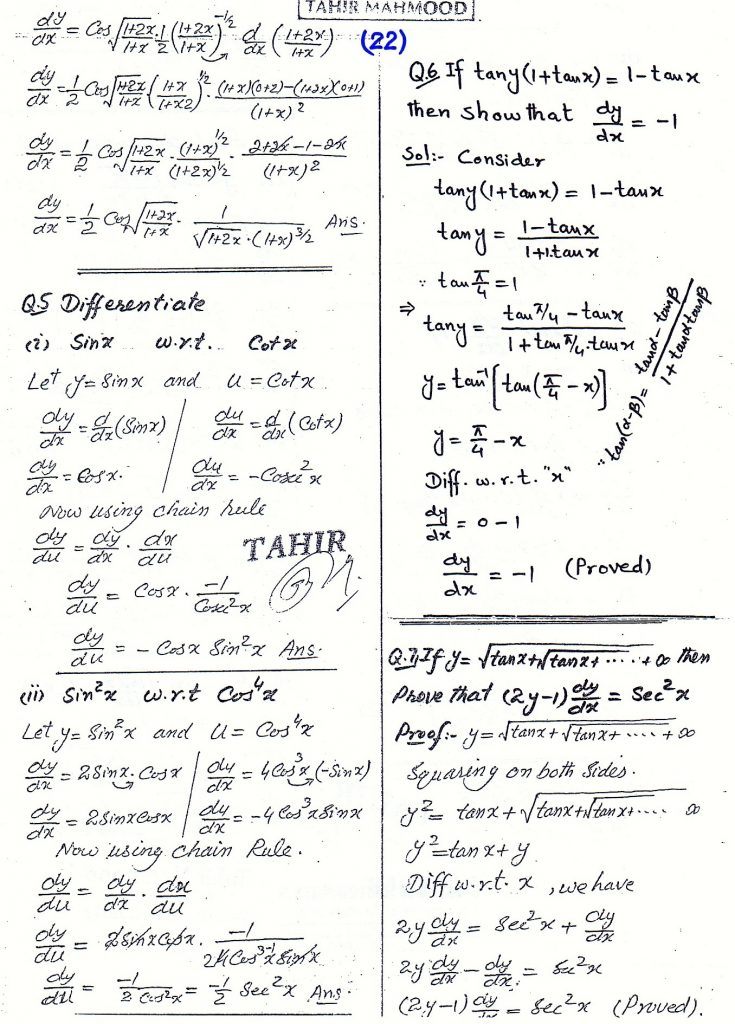 TAHIR MAHMOOD
(22)
dy/dx = Cos√(1+2x/1+x) · 1/2 (1+2x/1+x)^-1/2 d/dx (1+2x/1+x)
dy/dx = 1/2 Cos√(1+2x/1+x) (1+x/1+x2)^1/2 · (1+x)(0+2)-(1+2x)(0+1)/(1+x)^2
dy/dx = 1/2 Cos√(1+2x/1+x) · (1+x)^1/2/(1+2x)^1/2 · 2+2x-1-2x/(1+x)^2
dy/dx = 1/2 Cos√(1+2x/1+x) · 1/√(1+2x)·(1+x)^3/2 Ans.
Q.5 Differentiate
(i) Sinx w.r.t. Cotx
Let y = Sinx and u = Cotx
dy/dx = d/dx (Sinx) | du/dx = d/dx (Cotx)
dy/dx = Cosx. | du/dx = -Cosec^2 x
Now using chain rule
dy/du = dy/dx · dx/du
TAHIR
dy/du = Cosx · -1/Cosec^2x
dy/du = - Cosx Sin^2x Ans.
(ii) Sin^2x w.r.t Cos^4x
Let y = Sin^2x and u = Cos^4x
dy/dx = 2Sinx. Cosx | du/dx = 4Cos^3x (-Sinx)
dy/dx = 2SinxCosx | du/dx = -4Cos^3xSinx
Now using Chain Rule.
dy/du = dy/dx · dx/du
dy/du = 2SinxCosx. -1/24Cos^3-1xSinx
dy/du = -1/2Cos^2x = -1/2 Sec^2x Ans.
Q6 If tany(1+tanx) = 1-tanx
then show that dy/dx = -1
Sol:- Consider
tany(1+tanx) = 1-tanx
tany = 1-tanx/1+1.tanx
∵ tan π/4 = 1
⇒ tany = tanπ/4 - tanx/1+tanπ/4.tanx
y = tan^-1[tan(π/4 - x)]
∵ tan(α-β) = tanα-tanβ/1+tanαtanβ
y = π/4 - x
Diff. w.r.t. "x"
dy/dx = 0-1
dy/dx = -1 (Proved)
Q.7, If y = √tanx+√tanx+ ..... +∞ then
Prove that (2y-1) dy/dx = Sec^2x
Proof:- y = √tanx+√tanx+ .... +∞
Squaring on both Sides.
y^2 = tanx+√tanx+√tanx+.... ∞
y^2 = tanx + y
Diff w.r.t. x , we have
2y dy/dx = Sec^2x + dy/dx
2y dy/dx - dy/dx = Sec^2x
(2y-1) dy/dx = Sec^2x (Proved).